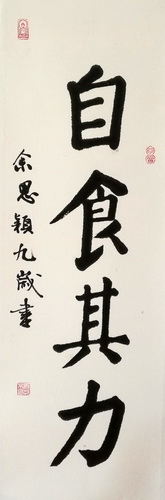 自食其力
余思颖九歲書